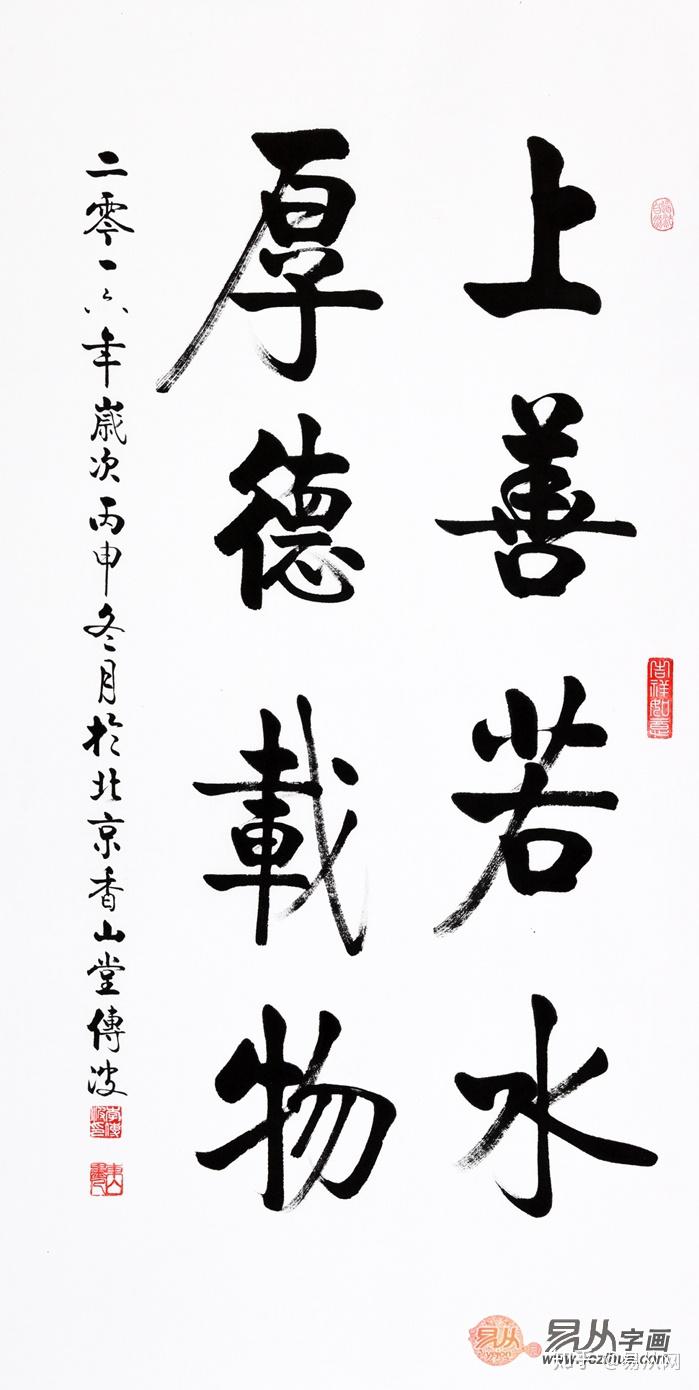 上善若水
厚德載物
二零一六年歲次丙申冬月於北京香山堂傳波
吉祥如意
易从
ycjon
易从字画
www.yczihua.com
知乎 @易从网